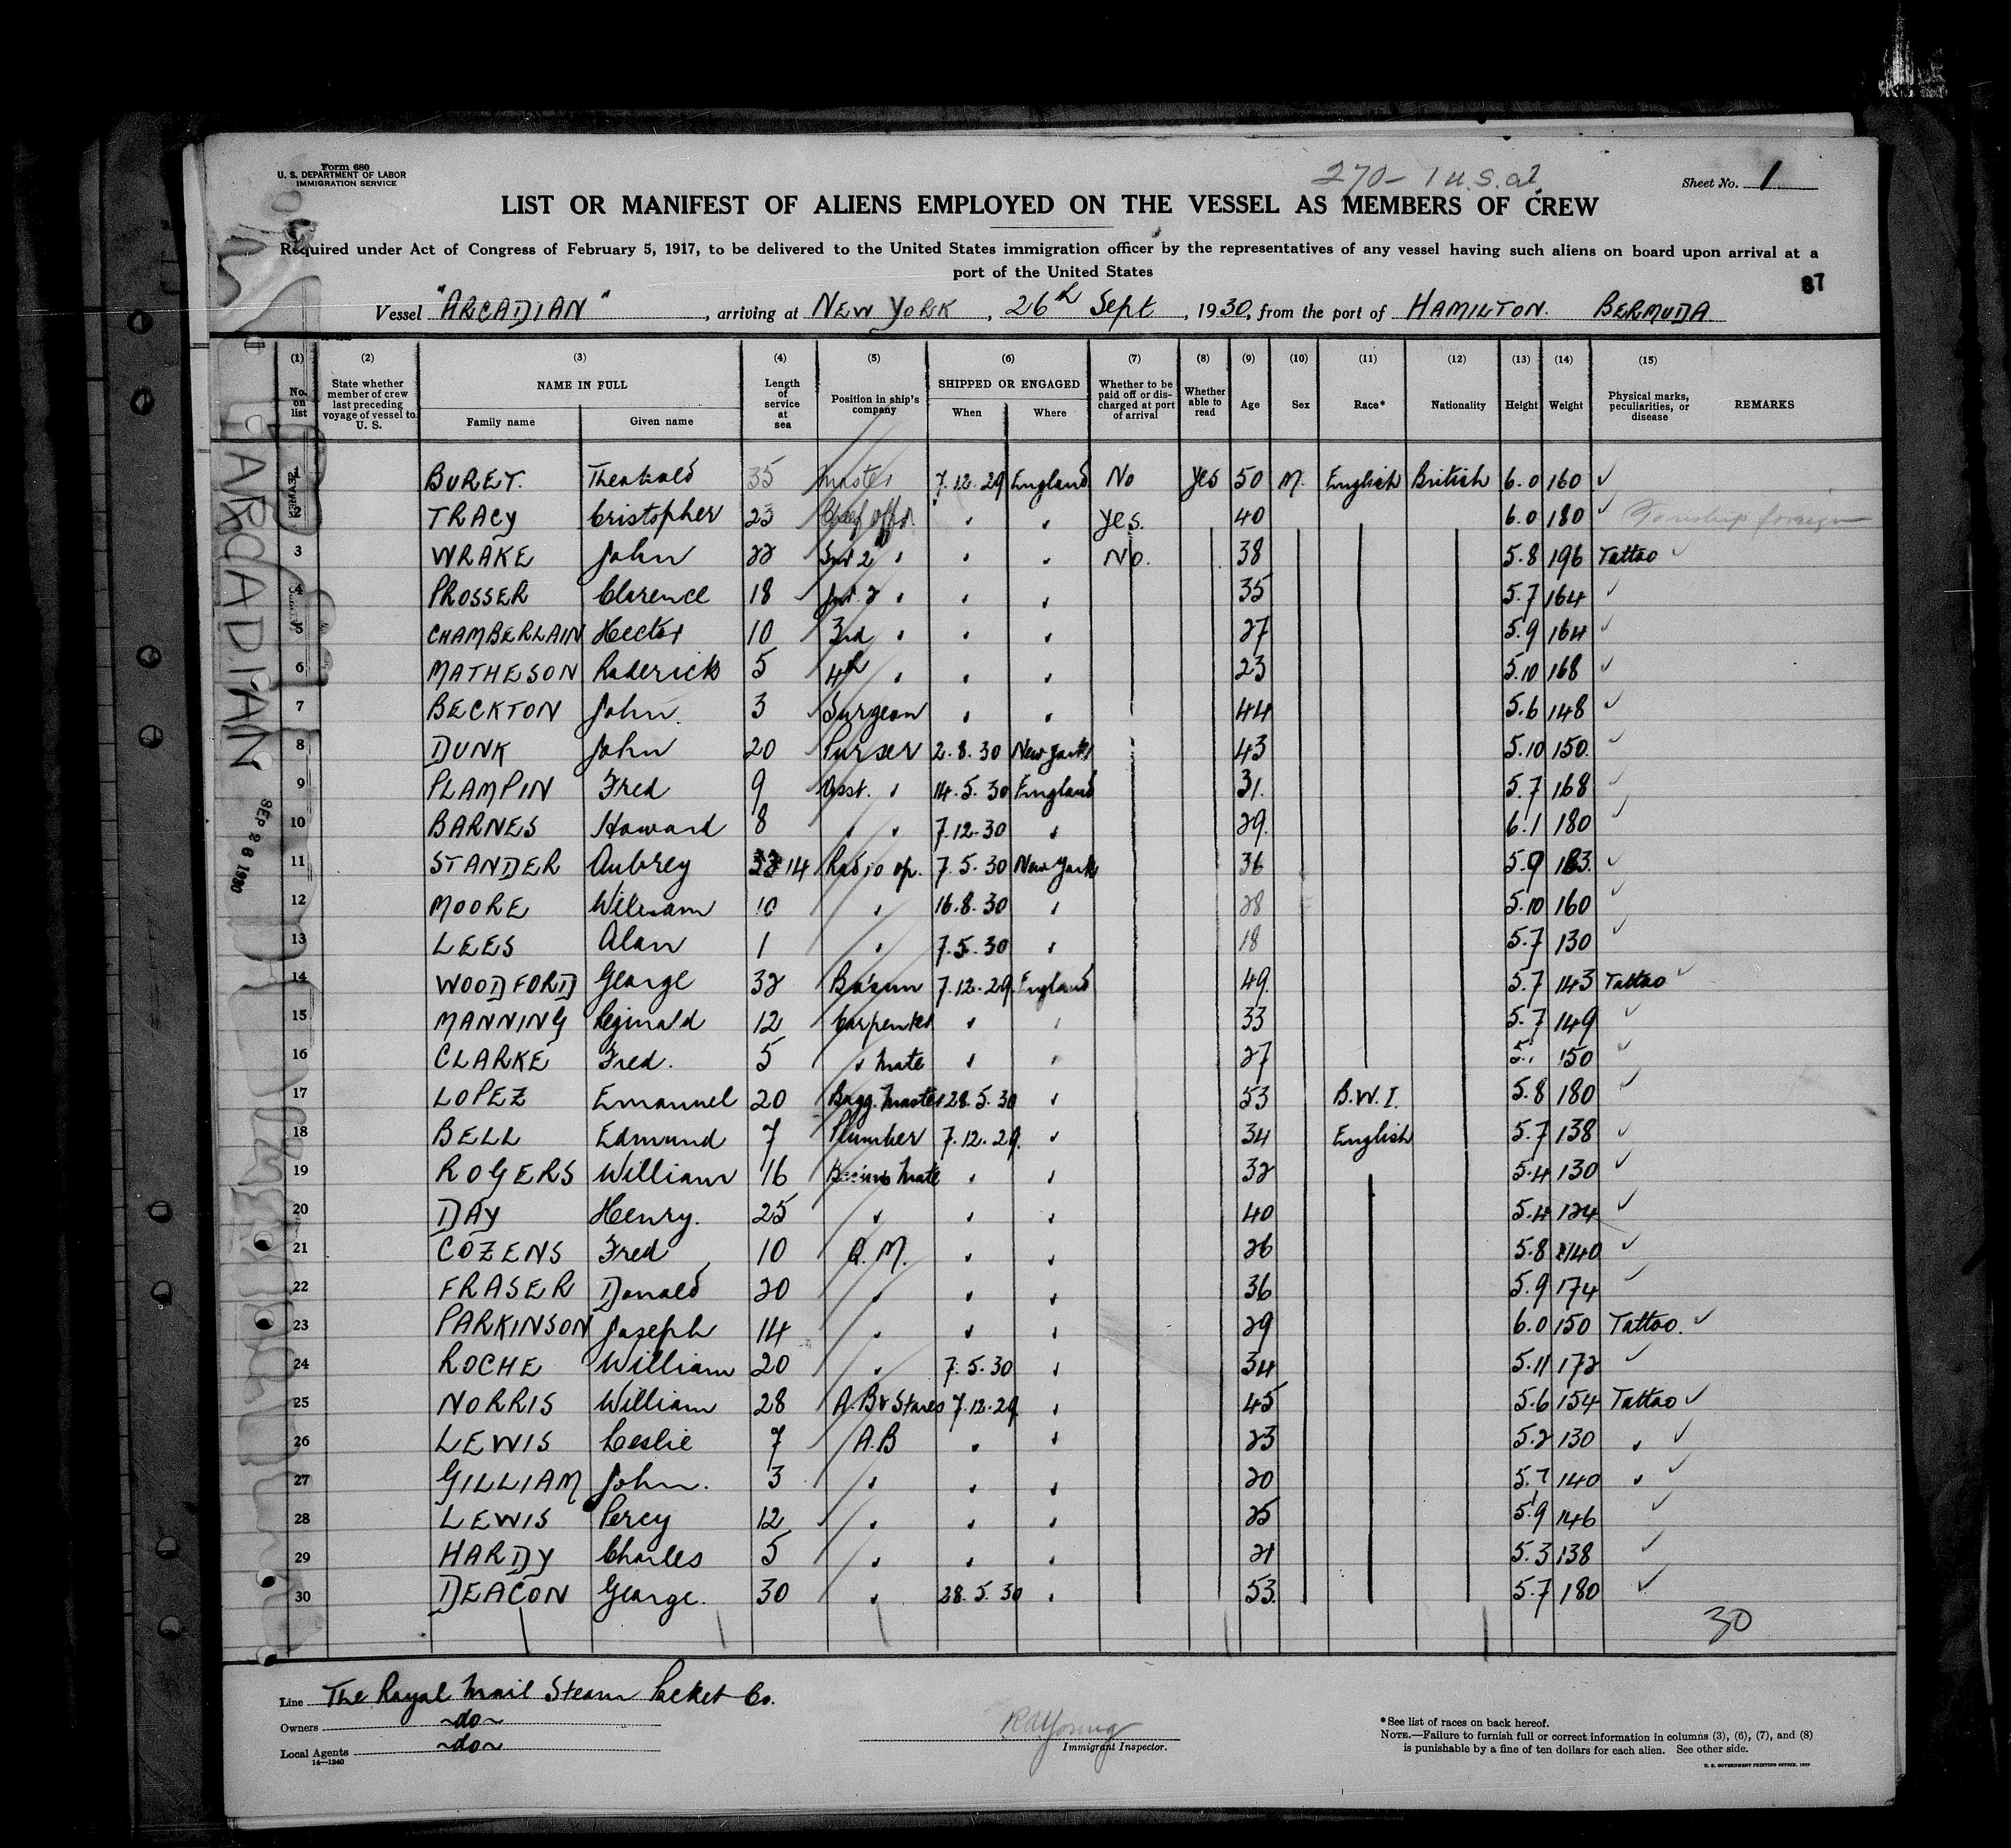 Form 680
U. S. DEPARTMENT OF LABOR
IMMIGRATION SERVICE
270 - 1 u.s.
Sheet No. 1
LIST OR MANIFEST OF ALIENS EMPLOYED ON THE VESSEL AS MEMBERS OF CREW
Required under Act of Congress of February 5, 1917, to be delivered to the United States immigration officer by the representatives of any vessel having such aliens on board upon arrival at a
port of the United States
87
Vessel "ARCADIAN", arriving at NEW YORK, 26th Sept, 1930, from the port of HAMILTON. BERMUDA
(1) No. on list (2) State whether member of crew last preceding voyage of vessel to U. S. (3) NAME IN FULL Family name Given name (4) Length of service at sea (5) Position in ship's company (6) SHIPPED OR ENGAGED When Where (7) Whether to be paid off or discharged at port of arrival (8) Whether able to read (9) Age (10) Sex (11) Race* (12) Nationality (13) Height (14) Weight (15) Physical marks, peculiarities, or disease REMARKS
1 BURET. 35 Master 7.12.29 England No Yes 50 M. English British 6.0 160 ✓
2 TRACY Cristopher 23 Chief offr 〃 〃 Yes. 40 6.0 180 ✓
3 WRAKE John 22 Snr 2 〃 〃 〃 No. 38 5.8 196 Tattoo ✓
4 PROSSER Clarence 18 Jnr. 2 〃 〃 〃 35 5.7 164 ✓
5 CHAMBERLAIN Hector 10 3rd 〃 〃 〃 27 5.9 164 ✓
6 MATHESON Roderick 5 4th 〃 〃 〃 23 5.10 168 ✓
7 BECKTON John. 3 Surgeon 〃 〃 44 5.6 148 ✓
8 DUNK John 20 Purser 2.8.30 New York 43 5.10 150. ✓
9 PLAMPIN Fred 9 Asst. 〃 14.5.30 England 31. 5.7 168 ✓
10 BARNES Howard 8 〃 〃 7.12.30 〃 29. 6.1 180 ✓
11 STANDER Aubrey 14 Radio op. 7.5.30 New York 36 5.9 183. ✓
12 MOORE William 10 〃 16.8.30 〃 28 5.10 160 ✓
13 LEES Alan 1 〃 7.5.30 〃 18 5.7 130 ✓
14 WOODFORD George 32 Bo'sun 7.12.29 England 49. 5.7 143 Tattoo ✓
15 MANNING Reginald 12 Carpenter 〃 〃 33 5.7 149 ✓
16 CLARKE Fred. 5 〃 Mate 〃 〃 27 150 ✓
17 LOPEZ Emanuel 20 Bagg. Master 28.5.30 〃 53 B.W.I. 5.8 180 ✓
18 BELL Edmund 7 Plumber 7.12.29. 〃 34 English 5.7 138 ✓
19 ROGERS William 16 Bosuns Mate 〃 〃 32 5.4 130 ✓
20 DAY Henry. 25 〃 〃 〃 40 5.4 124 ✓
21 COZENS Fred 10 Q.M. 〃 〃 26 5.8 140 ✓
22 FRASER Donald 20 〃 〃 〃 36 5.9 174 ✓
23 PARKINSON Joseph 14 〃 〃 〃 29 6.0 150 Tattoo. ✓
24 ROCHE William 20 〃 7.5.30 〃 34 5.11 172 ✓
25 NORRIS William 28 A.B & Stores 7.12.29 〃 45 5.6 154 Tattoo ✓
26 LEWIS Leslie 7 A.B 〃 〃 23 5.2 130 〃 ✓
27 GILLIAM John. 3 〃 〃 〃 20 5.7 140 〃 ✓
28 LEWIS Percy 12 〃 〃 〃 25 5.9 146 ✓
29 HARDY Charles 5 〃 〃 〃 21 5.3 138 ✓
30 DEACON George. 30 〃 28.5.30 〃 53. 5.7 180 ✓
30
ARCADIAN
SEP 26 1930
Line The Royal Mail Steam Packet Co.
Owners ~do~
Local Agents ~do~
14—1240
Immigrant Inspector.
*See list of races on back hereof.
NOTE.—Failure to furnish full or correct information in columns (3), (6), (7), and (8)
is punishable by a fine of ten dollars for each alien. See other side.
U. S. GOVERNMENT PRINTING OFFICE.